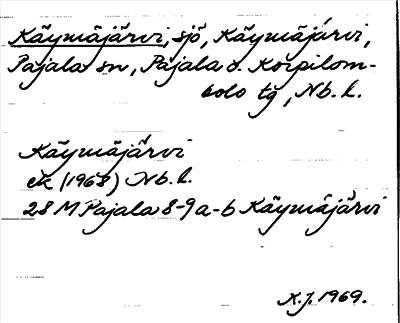 Käymäjärvi, sjö, Käymäjärvi,
Pajala sn, Pajala o. Korpilom-
bolo tg, Nb. l.
Käymäjärvi
ek (1968) Nb. l.
28 M Pajala 8-9 a-b Käymäjärvi
K.J. 1969.